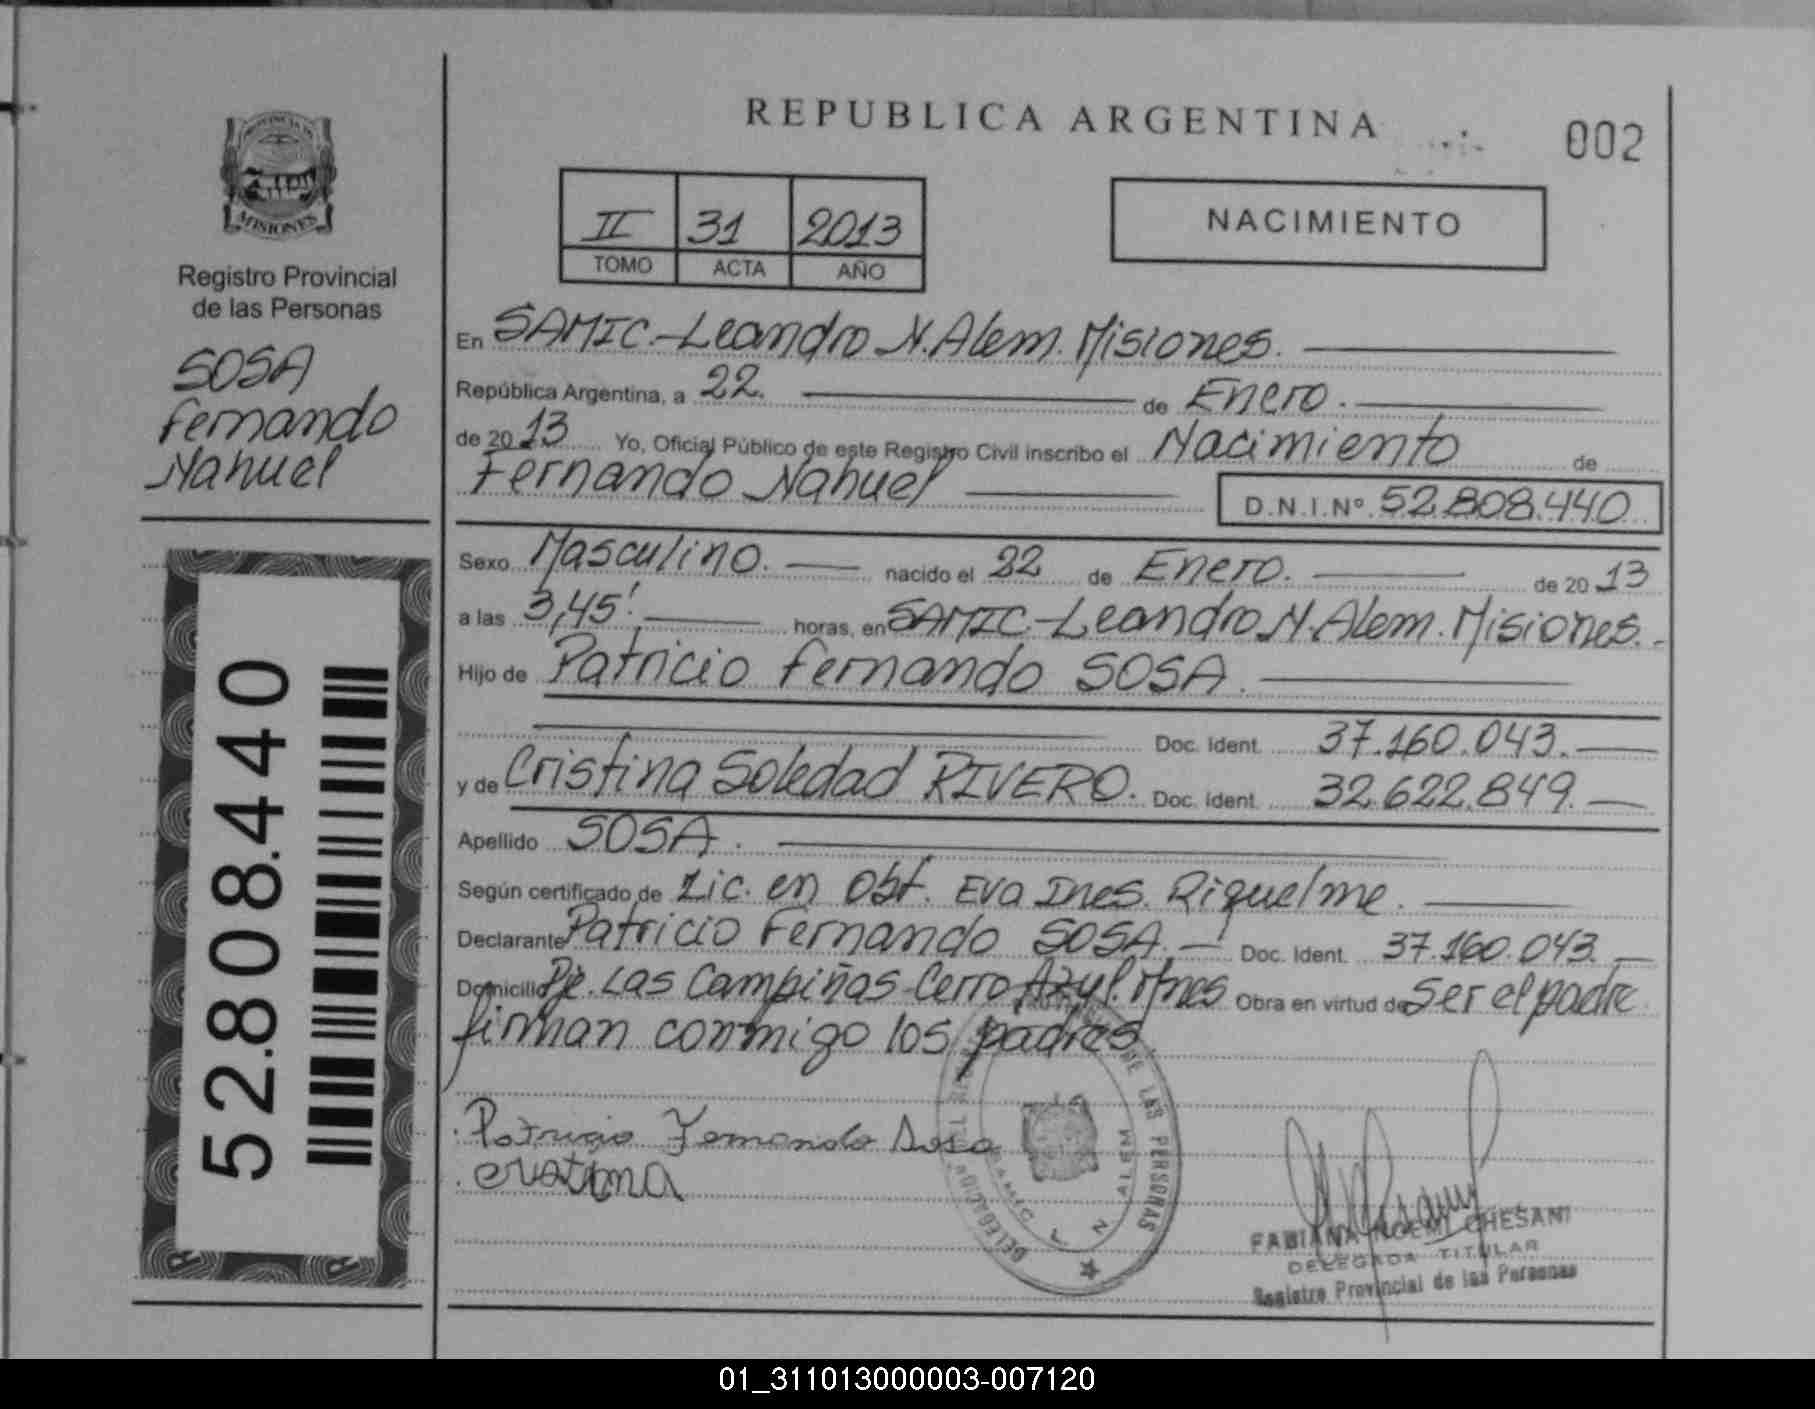 REPUBLICA ARGENTINA
002
PROVINCIA DE
MISIONES
Registro Provincial
de las Personas
SOSA
Fernando
Nahuel
52.808.440
II 31 2013
TOMO ACTA AÑO
NACIMIENTO
En SAMIC.-Leandro N. Alem. Misiones.
República Argentina, a 22. de Enero.
de 20 13 Yo, Oficial Público de este Registro Civil inscribo el Nacimiento de
Fernando Nahuel D.N.I.Nº 52.808.440
Sexo Masculino. nacido el 22 de Enero. de 20 13
a las 3,45'. horas, en SAMIC-Leandro N. Alem. Misiones.-
Hijo de Patricio Fernando SOSA.
Doc. Ident. 37.160.043.
y de Cristina Soledad RIVERO. Doc. Ident. 32.622.849.
Apellido SOSA.
Según certificado de Lic. en Obt. Eva Ines. Riquelme.
Declarante Patricio Fernando SOSA. Doc. Ident. 37.160.043.
Domicilio Pje. Las Campiñas Cerro Azul. Mnes Obra en virtud de Ser el padre
firman conmigo los padres
Patricio Fernando Sosa
cristina
DE LAS PERSONAS
DELEGACION
SAMIC L N ALEM
FABIANA NOEMI CHESANI
DELEGADA TITULAR
Registro Provincial de las Personas
01_311013000003-007120